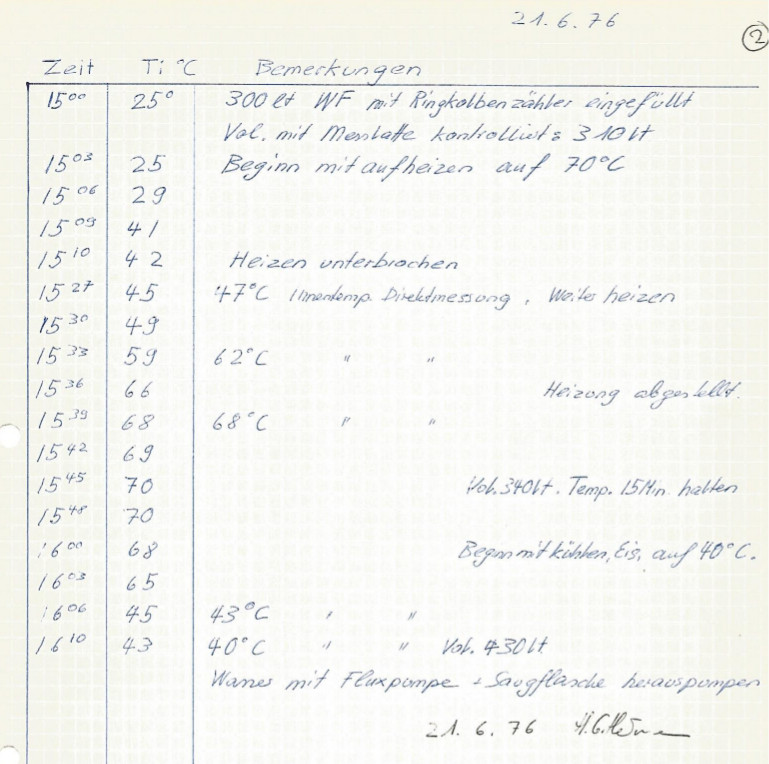 21.6.76
2
Zeit Ti °C Bemerkungen
15⁰⁰ 25° 300 lt WF mit Ringkolbenzähler eingefüllt
Vol. mit Messlatte kontrolliert: 310 lt
15⁰³ 25 Beginn mit aufheizen auf 70°C
15⁰⁶ 29
15⁰⁹ 41
15¹⁰ 42 Heizen unterbrochen
15²⁷ 45 47°C Innentemp. Direktmessung, Weiter heizen
15³⁰ 49
15³³ 59 62°C " "
15³⁶ 66 Heizung abgestellt.
15³⁹ 68 68°C " "
15⁴² 69
15⁴⁵ 70 Vol. 340 lt. Temp. 15 Min. halten
15⁴⁸ 70
16⁰⁰ 68 Beginn mit kühlen, Eis, auf 40°C.
16⁰³ 65
16⁰⁶ 45 43°C " "
16¹⁰ 43 40°C " " Vol. 430 lt
Wasser mit Fluxpumpe + Saugflasche herauspumpen
21.6.76